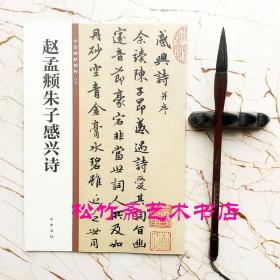 感興詩 并序
余讀陳子昂感遇詩愛其詞旨幽
邃音節豪宕非當世詞人所及如
丹砂空青金膏水碧雖近乏世用
中华碑帖精粹
赵孟頫朱子感兴诗
中华书局
松竹斋艺术书店